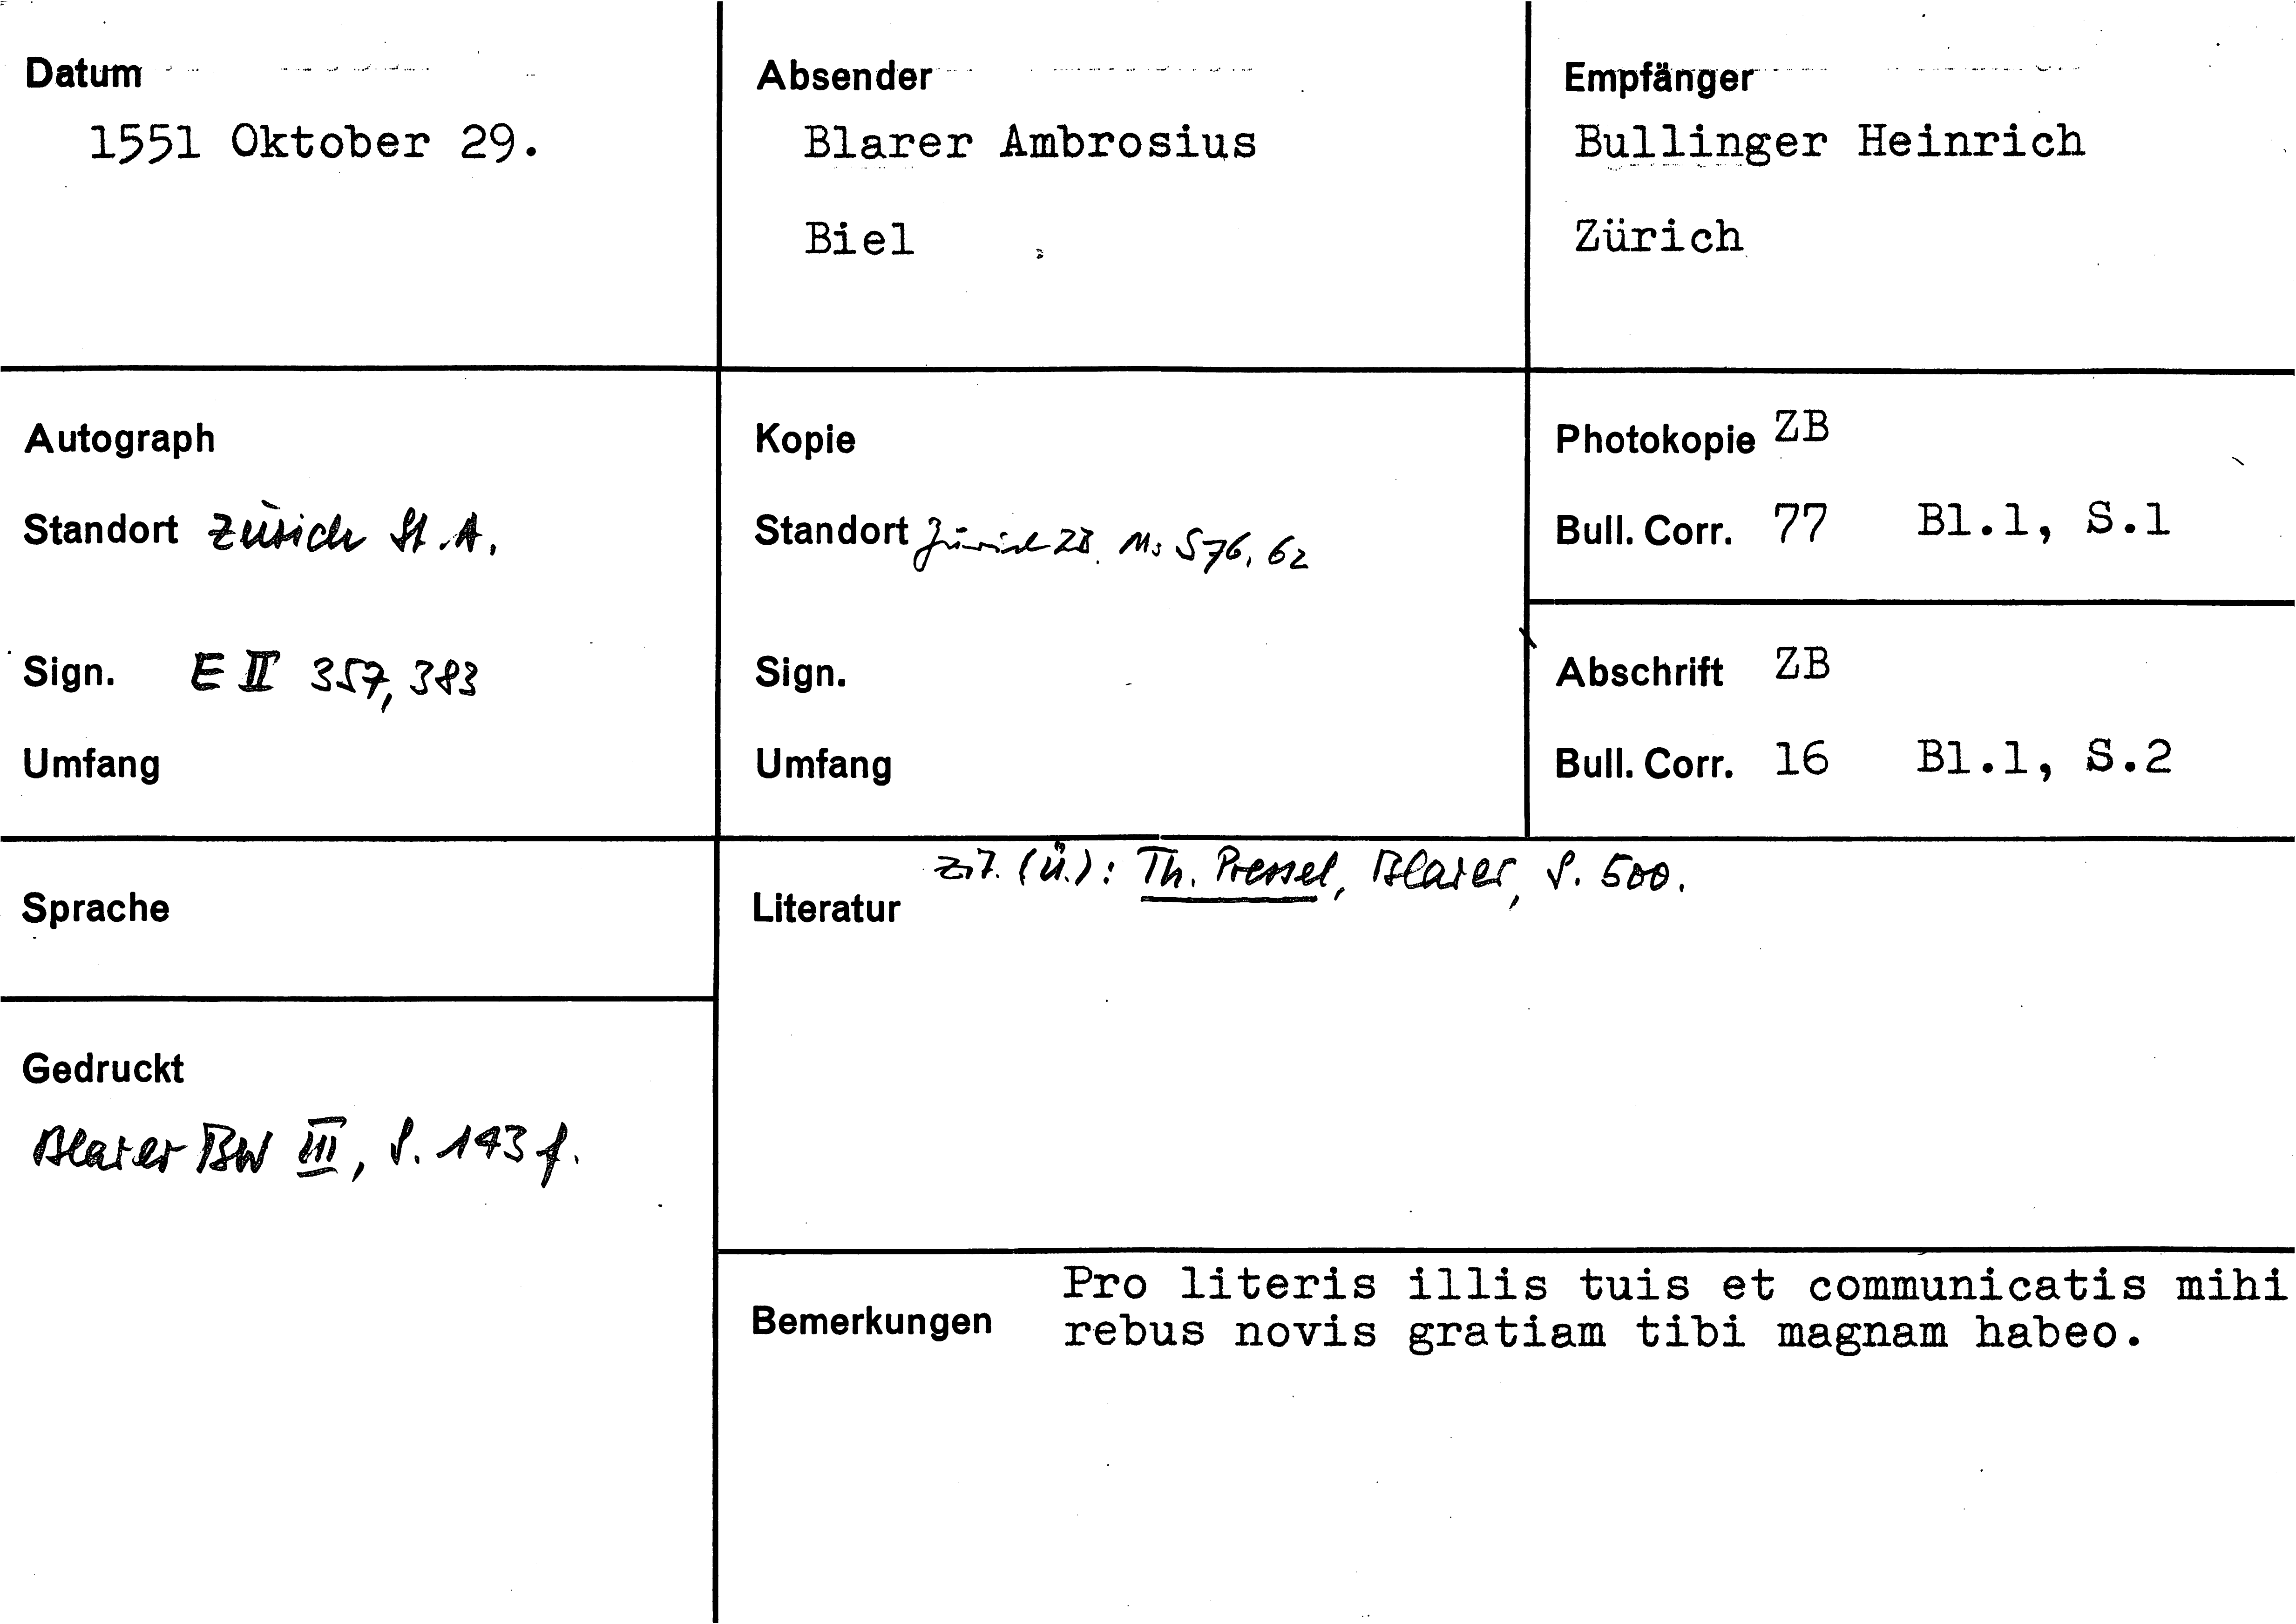 Datum
1551 Oktober 29.
Absender
Blarer Ambrosius
Biel
Empfänger
Bullinger Heinrich
Zürich
Autograph
Standort Zürich St.A.
Sign. E II 357, 383
Umfang
Kopie
Standort Zürich ZB. Ms S 76, 62
Sign.
Umfang
Photokopie ZB
Bull. Corr. 77 Bl.1, S.1
Abschrift ZB
Bull. Corr. 16 Bl.1, S.2
Sprache
Gedruckt
Blarer BW III, S. 143 f.
zit. (Ü.): Th. Pressel, Blarer, S. 500.
Literatur
Bemerkungen
Pro literis illis tuis et communicatis mihi
rebus novis gratiam tibi magnam habeo.